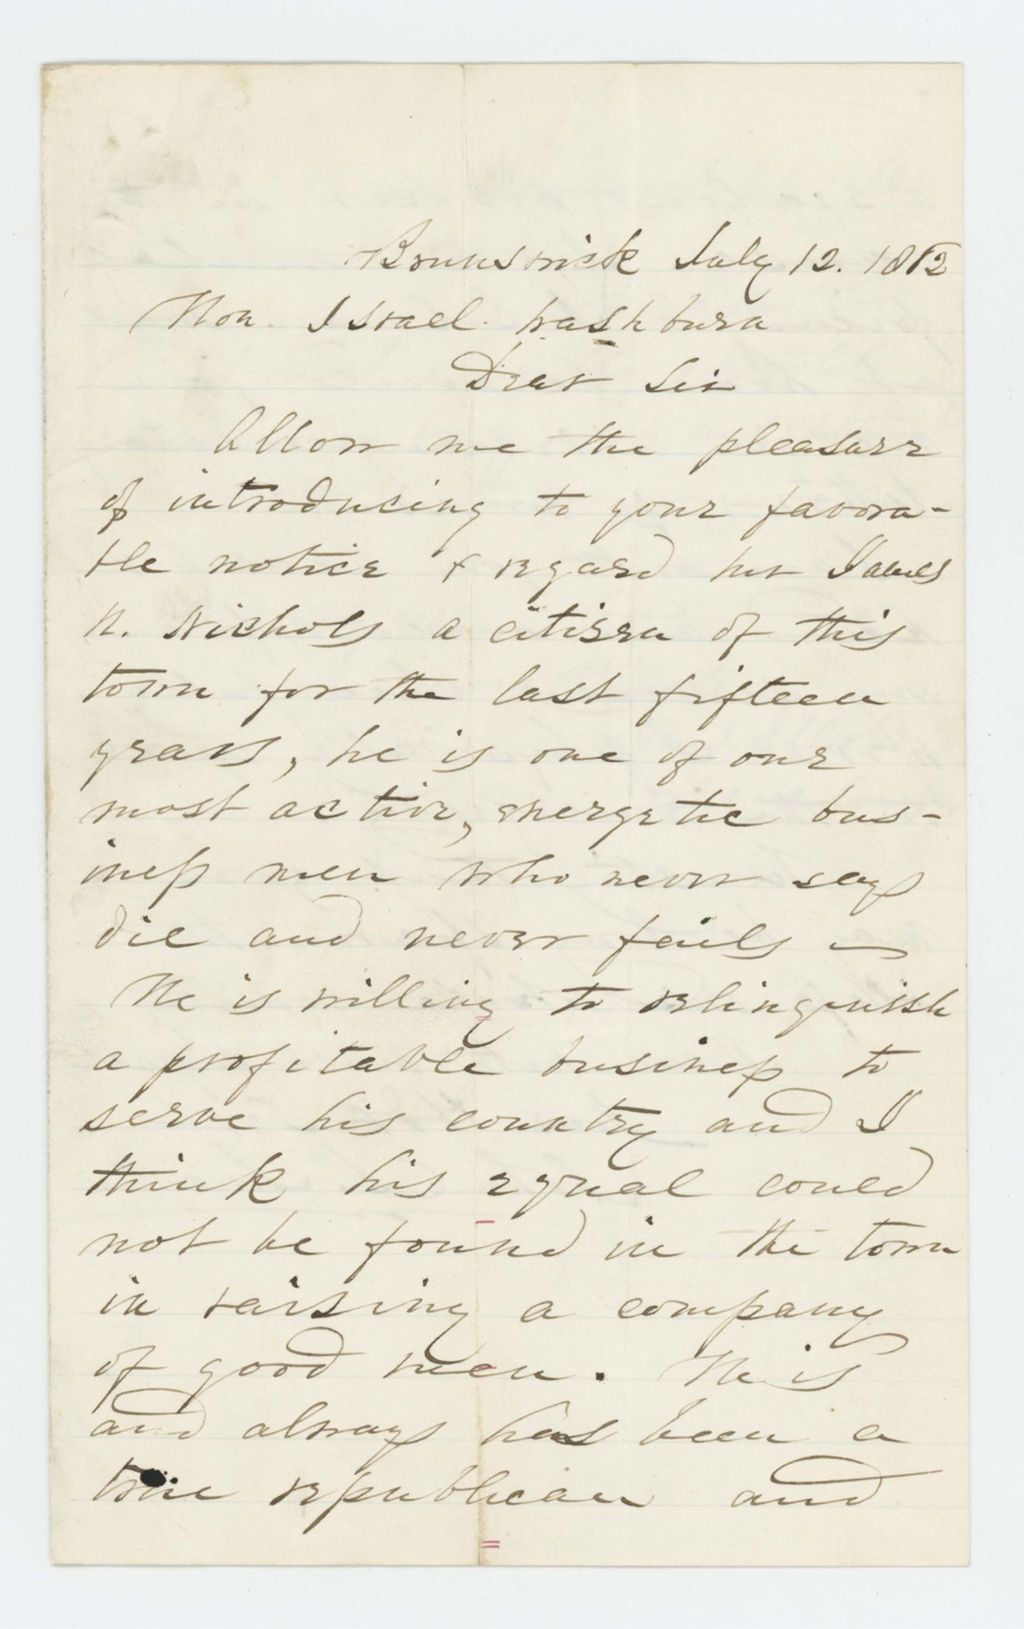 Brunswick July 12. 1862
Hon. Israel Washburn
Dear Sir
Allow me the pleasure
of introducing to your favora-
ble notice & regard Mr James
N. Nichols a citizen of this
town for the last fifteen
years, he is one of our
most active, energetic bus-
iness men who never says
die and never fails —
He is willing to relinquish
a profitable business to
serve his country and I
think his equal could
not be found in the town
in raising a company
of good men. He is
and always has been a
true republican and